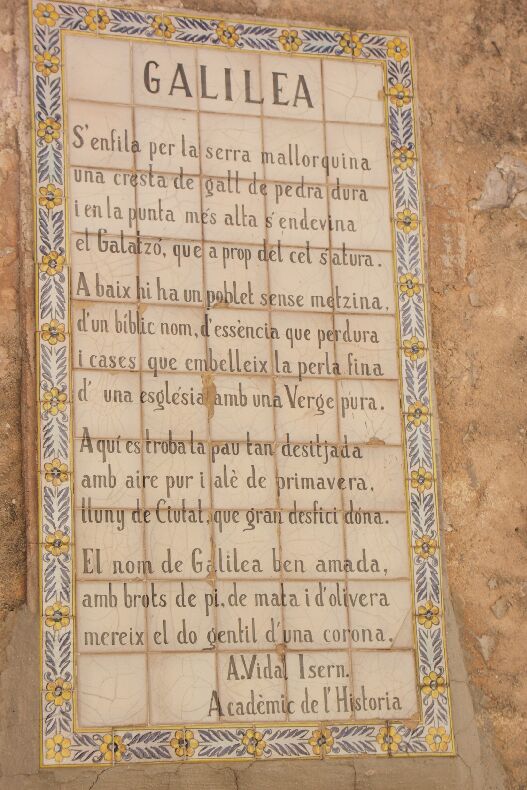 GALILEA
S'enfila per la serra mallorquina
una cresta de gall de pedra dura
i en la punta més alta s'endevina
el Galatzó, que a prop del cel s'atura.
A baix hi ha un poblet sense metzina,
d'un bíblic nom, d'essència que perdura
i cases que embelleix la perla fina
d' una església amb una Verge pura.
Aquí es troba la pau tan desitjada
amb aire pur i alè de primavera,
lluny de Ciutat, que gran desfici dóna.
El nom de Galilea ben amada,
amb brots de pi, de mata i d'olivera
mereix el do gentil d'una corona.
A.Vidal Isern.
Acadèmic de l'Historia